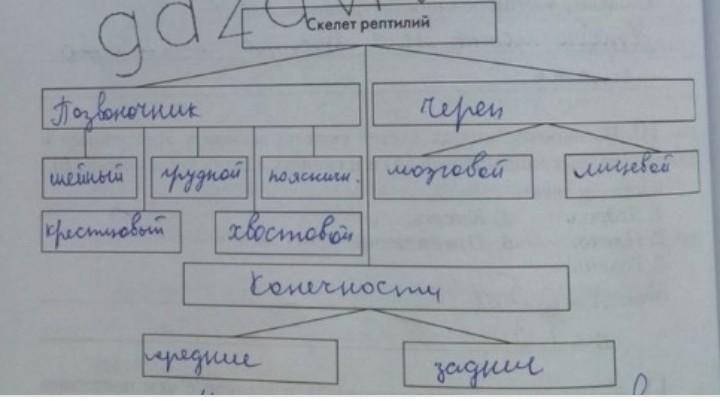 gdz
Скелет рептилий
Позвоночник
Череп
шейный
грудной
поясничн.
мозговой
лицевой
крестцовый
хвостовой
Конечности
передние
задние